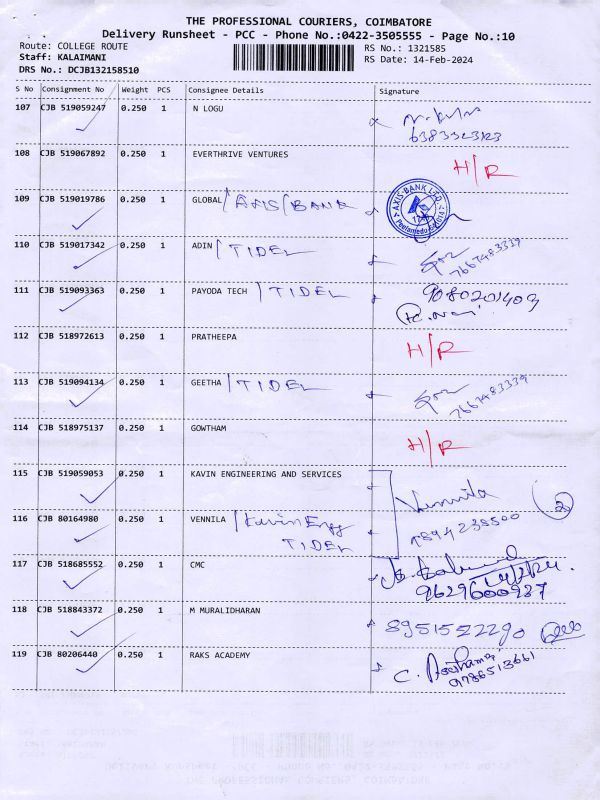 THE PROFESSIONAL COURIERS, COIMBATORE
Delivery Runsheet - PCC - Phone No.:0422-3505555 - Page No.:10
Route: COLLEGE ROUTE RS No.: 1321585
Staff: KALAIMANI RS Date: 14-Feb-2024
DRS No.: DCJB132158510
S No Consignment No Weight PCS Consignee Details Signature
107 CJB 519059247 0.250 1 N LOGU
6383323123
108 CJB 519067892 0.250 1 EVERTHRIVE VENTURES H/R
109 CJB 519019786 0.250 1 GLOBAL /AXIS/BANK AXIS BANK LTD
110 CJB 519017342 0.250 1 ADIN /TIDEL 7667483339
111 CJB 519093363 0.250 1 PAYODA TECH /TIDEL 9080201409
112 CJB 518972613 0.250 1 PRATHEEPA H/R
113 CJB 519094134 0.250 1 GEETHA /TIDEL 7667483339
114 CJB 518975137 0.250 1 GOWTHAM H/R
115 CJB 519059053 0.250 1 KAVIN ENGINEERING AND SERVICES Vennila 2
116 CJB 80164980 0.250 1 VENNILA /Kavin Engg 7894238500
TIDEL
117 CJB 518685552 0.250 1 CMC
9629600937
118 CJB 518843372 0.250 1 M MURALIDHARAN 8951522290
119 CJB 80206440 0.250 1 RAKS ACADEMY C.
9786513661